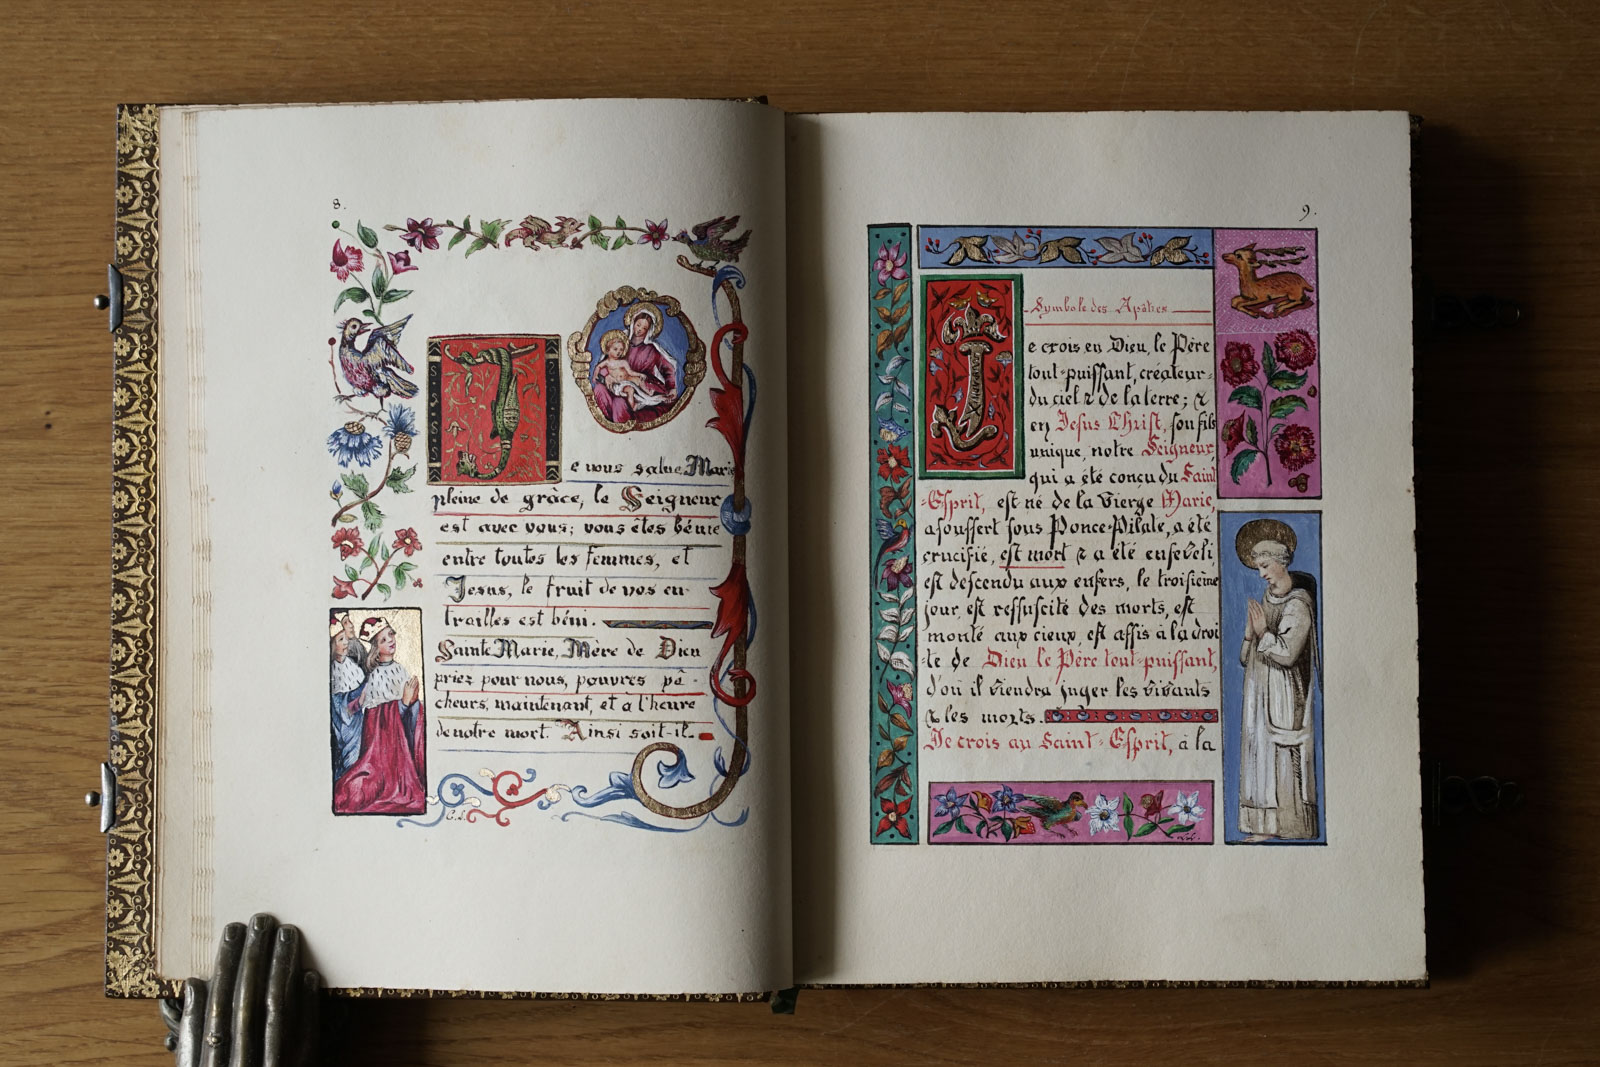 8.
J
e vous salue Marie
pleine de grâce, le Seigneur
est avec vous; vous êtes bénie
entre toutes les femmes, et
Jesus, le fruit de vos en-
trailles est béni.
Sainte Marie, Mère de Dieu
priez pour nous, pouvres pé-
cheurs, maintenant, et à l'heure
de notre mort. Ainsi soit-il.
9.
Symbole des Apôtres
J
e crois en Dieu, le Père
tout-puissant, créateur
du ciel & de la terre; &
en Jesus Christ, son fils
unique, notre Seigneur,
qui a été conçu du Saint
-Esprit, est né de la Vierge Marie,
a souffert sous Ponce-Pilate, a été
crucifié, est mort & a été enseveli,
est descendu aux enfers, le troisième
jour, est ressuscité des morts, est
monté aux cieux, est assis à la droi
-te de Dieu le Père tout-puissant,
d'où il viendra juger les vivants
& les morts.
Je crois au Saint-Esprit, à la